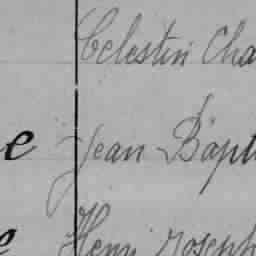 Celestin Cha
e Jean Bapt
e Henri Joseph